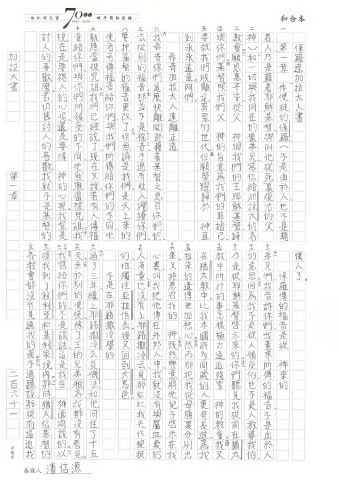 和合本
70
保羅達加拉太人書
第一章 作使徒的保羅(不是由於人也不是藉
着人乃是藉着耶穌基督與叫他從死裏復活的父
神)和一切與我同在的眾弟兄寫信給加拉太的各
教會願恩惠平安從父 神與我們的主耶穌基督歸
與你們基督照我們父 神的旨意為我們的罪捨己
要救我們脫離這罪惡的世代但願榮耀歸於 神直
到永永遠遠阿們
希奇加拉太人速離正道
我希奇你們這麼快離開那藉着基督之恩召你們的
去從別的福音那並不是福音不過有些人攪擾你們
要把基督的福音更改了但無論是我們是天上來的
使者若傳福音給你們與我們所傳給你們的不同他
就應當被咒詛我們已經說了現在又說若有人傳福
音給你們與你們所領受的不同他就應當被咒詛我
現在是要得人的心呢還是要得 神的心呢我豈是
討人的喜歡麼若仍舊討人的喜歡我就不是基督的
僕人了。
保羅傳的福音是從 神來的
弟兄們我告訴你們我素來所傳的福音不是出於人
的意思因為我不是從人領受的也不是人教導我的
乃是從耶穌基督啟示來的你們聽見我從前在猶太
教中所行的事怎樣極力逼迫殘害 神的教會我又
在猶太教中比我本國許多同歲的人更有長進為我
祖宗的遺傳更加熱心然而那把我從母腹裏分別出
來又施恩召我的 神既然樂意將他兒子啟示在我
心裏叫我把他傳在外邦人中我就沒有與屬血氣的
人商量也沒有上耶路撒冷去見那些比我先作使徒
的惟獨往亞拉伯去後又回到大馬色
不是在耶路撒冷學的
過了三年纔上耶路撒冷去見磯法和他同住了十五
天至於別的使徒除了主的兄弟雅各我都沒有看見
我寫給你們的不是謊話這是我在 神面前說的以
後我到了敘利亞和基利家境內那時猶太信基督的
各教會都沒有見過我的面不過聽說那從前逼迫我
加拉太書 第一章 二百六十一
潘信源